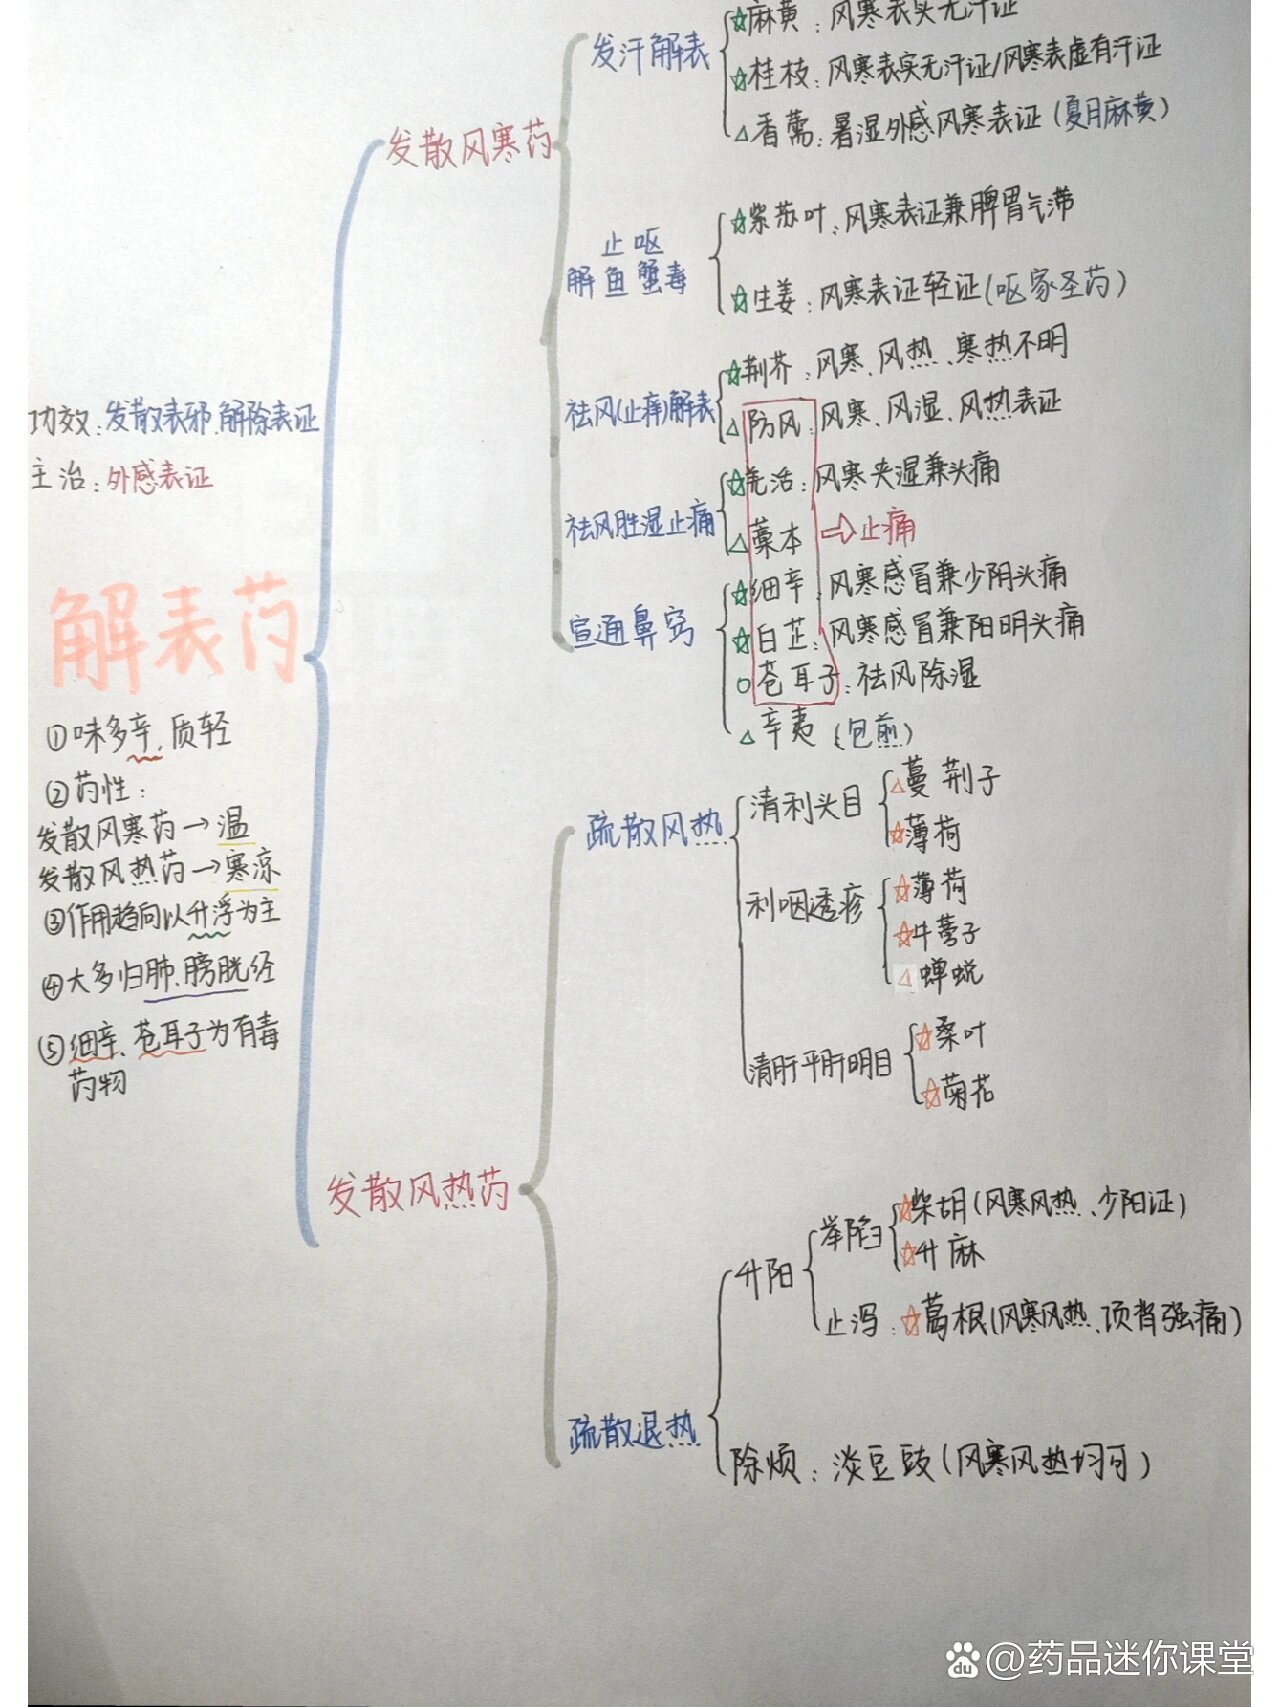 发散风寒药
发汗解表
☆麻黄：风寒表实无汗证
☆桂枝：风寒表实无汗证/风寒表虚有汗证
△香薷：暑湿外感风寒表证（夏月麻黄）
止呕
解鱼蟹毒
☆紫苏叶：风寒表证兼脾胃气滞
☆生姜：风寒表证轻证（呕家圣药）
祛风(止痒)解表
☆荆芥：风寒、风热、寒热不明
△防风：风寒、风湿、风热表证
祛风胜湿止痛
☆羌活：风寒夹湿兼头痛
△藁本
⇒止痛
宣通鼻窍
☆细辛：风寒感冒兼少阴头痛
☆白芷：风寒感冒兼阳明头痛
○苍耳子：祛风除湿
△辛夷（包煎）
功效：发散表邪、解除表证
主治：外感表证
解表药
①味多辛、质轻
②药性：
发散风寒药→温
发散风热药→寒凉
③作用趋向以升浮为主
④大多归肺、膀胱经
⑤细辛、苍耳子为有毒
药物
发散风热药
疏散风热
清利头目
△蔓荆子
☆薄荷
利咽透疹
☆薄荷
☆牛蒡子
△蝉蜕
清肝平肝明目
☆桑叶
☆菊花
疏散退热
升阳
举陷
☆柴胡（风寒风热、少阳证）
☆升麻
止泻：☆葛根（风寒风热、项背强痛）
除烦：淡豆豉（风寒风热均可）
@药品迷你课堂